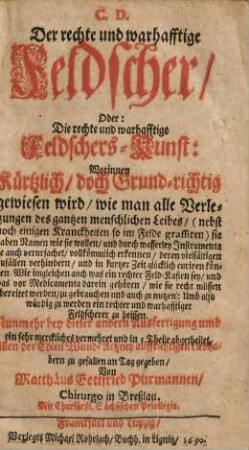 C. D.
Der rechte und warhafftige
Feldscher/
Oder:
Die rechte und warhafftige
Feldschers-Kunst:
Worinnen
Kürtzlich/ doch Grund-richtig
gewiesen wird/ wie man alle Verle-
tzungen des gantzen menschlichen Leibes/ (nebst
noch einigen Kranckheiten so im Felde grassiren) sie
haben Namen wie sie wollen/ und durch wasserley Instrumenta
sie auch verursachet/ vollkömmlich erkennen/ deren vielfältigen
Zufällen verhindern/ und in kurtzer Zeit glücklich curiren kön-
nen. Wie imgleichen auch was ein rechter Feld-Kasten sey/ und
was vor Medicamenta darein gehören/ wie sie recht müssen
bereitet werden/ zu gebrauchen und auch zu nutzen: Umb also
würdig zu werden ein rechter und warhafftiger
Feldscherer zu heissen.
Nunmehr bey dieser andern Ausfertigung umb
ein sehr merckliches vermehret und in 3 Theile abgetheilet,
Allen der Edlen Wund-Artzney
bern zu gefallen an Tag gegeben/
Von
Matthäus Gottfried Purmannen/
Chirurgo in Breßlau.
Mit Churfürstl. Sächsischen Privilegio.
Franckfurt und Leipzig/
Verlegts Michael Rohrlach/ Buchh. in Lignitz/ 1690.